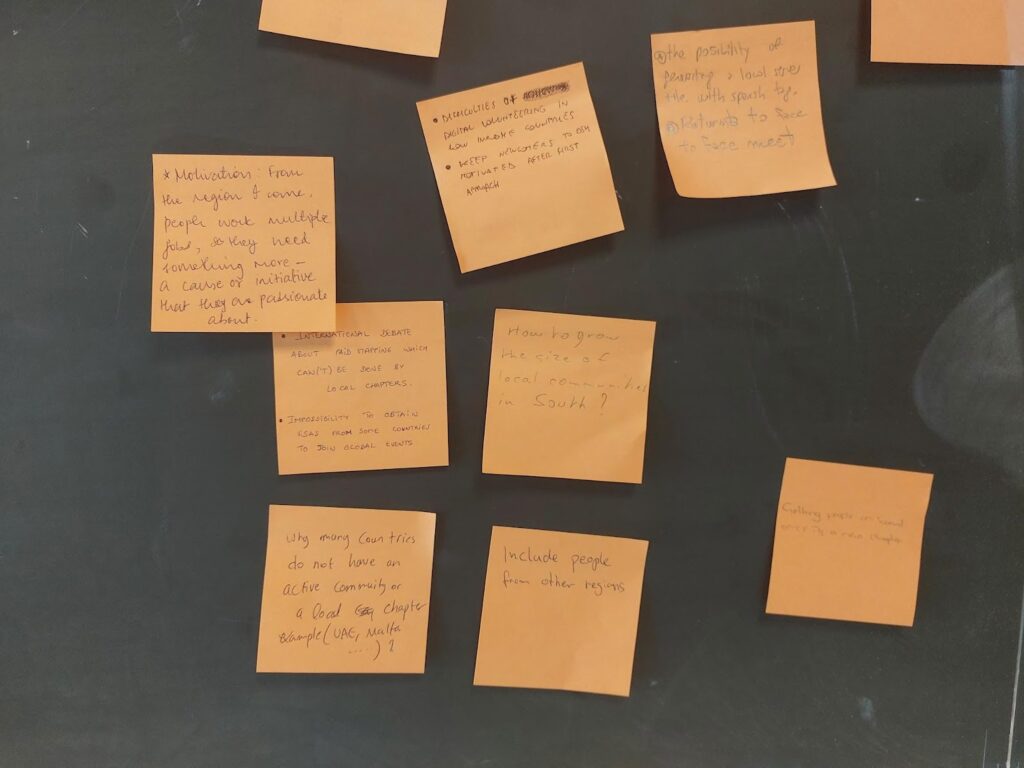 • DIFFICULTIES OF
DIGITAL VOLUNTEERING IN
LOW INCOME COUNTRIES
• KEEP NEWCOMERS TO OSM
MOTIVATED AFTER FIRST
APPROACH
the possibility of
a local
tile with
to face
to face meet
* Motivation: From
the region I come,
people work multiple
jobs, so they need
something more –
a cause or initiative
that they are passionate
about.
• INTERNATIONAL DEBATE
ABOUT PAID MAPPING WHICH
CAN('T) BE DONE BY
LOCAL CHAPTERS.
• IMPOSSIBILITY TO OBTAIN
VISAS FROM SOME COUNTRIES
TO JOIN GLOBAL EVENTS
How to grow
the size of
local communities
in South?
Why many Countries
do not have an
active Community or
a local chapter
example (UAE, Malta
....) ?
Include people
from other regions
Getting people on board
chapter